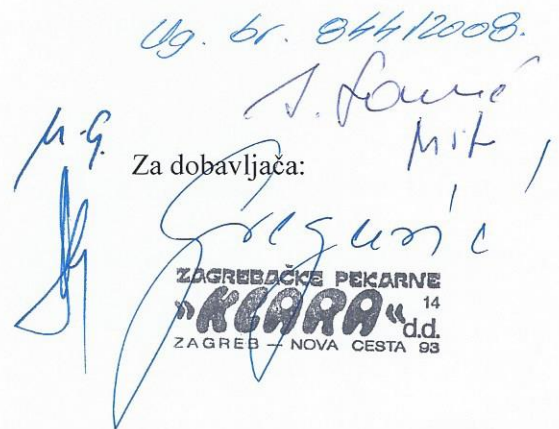 Ug. br. 844/2008.
M.G.
Za dobavljača:
Gregurić
ZAGREBAČKE PEKARNE
»KLARA« 14
d.d.
ZAGREB — NOVA CESTA 93